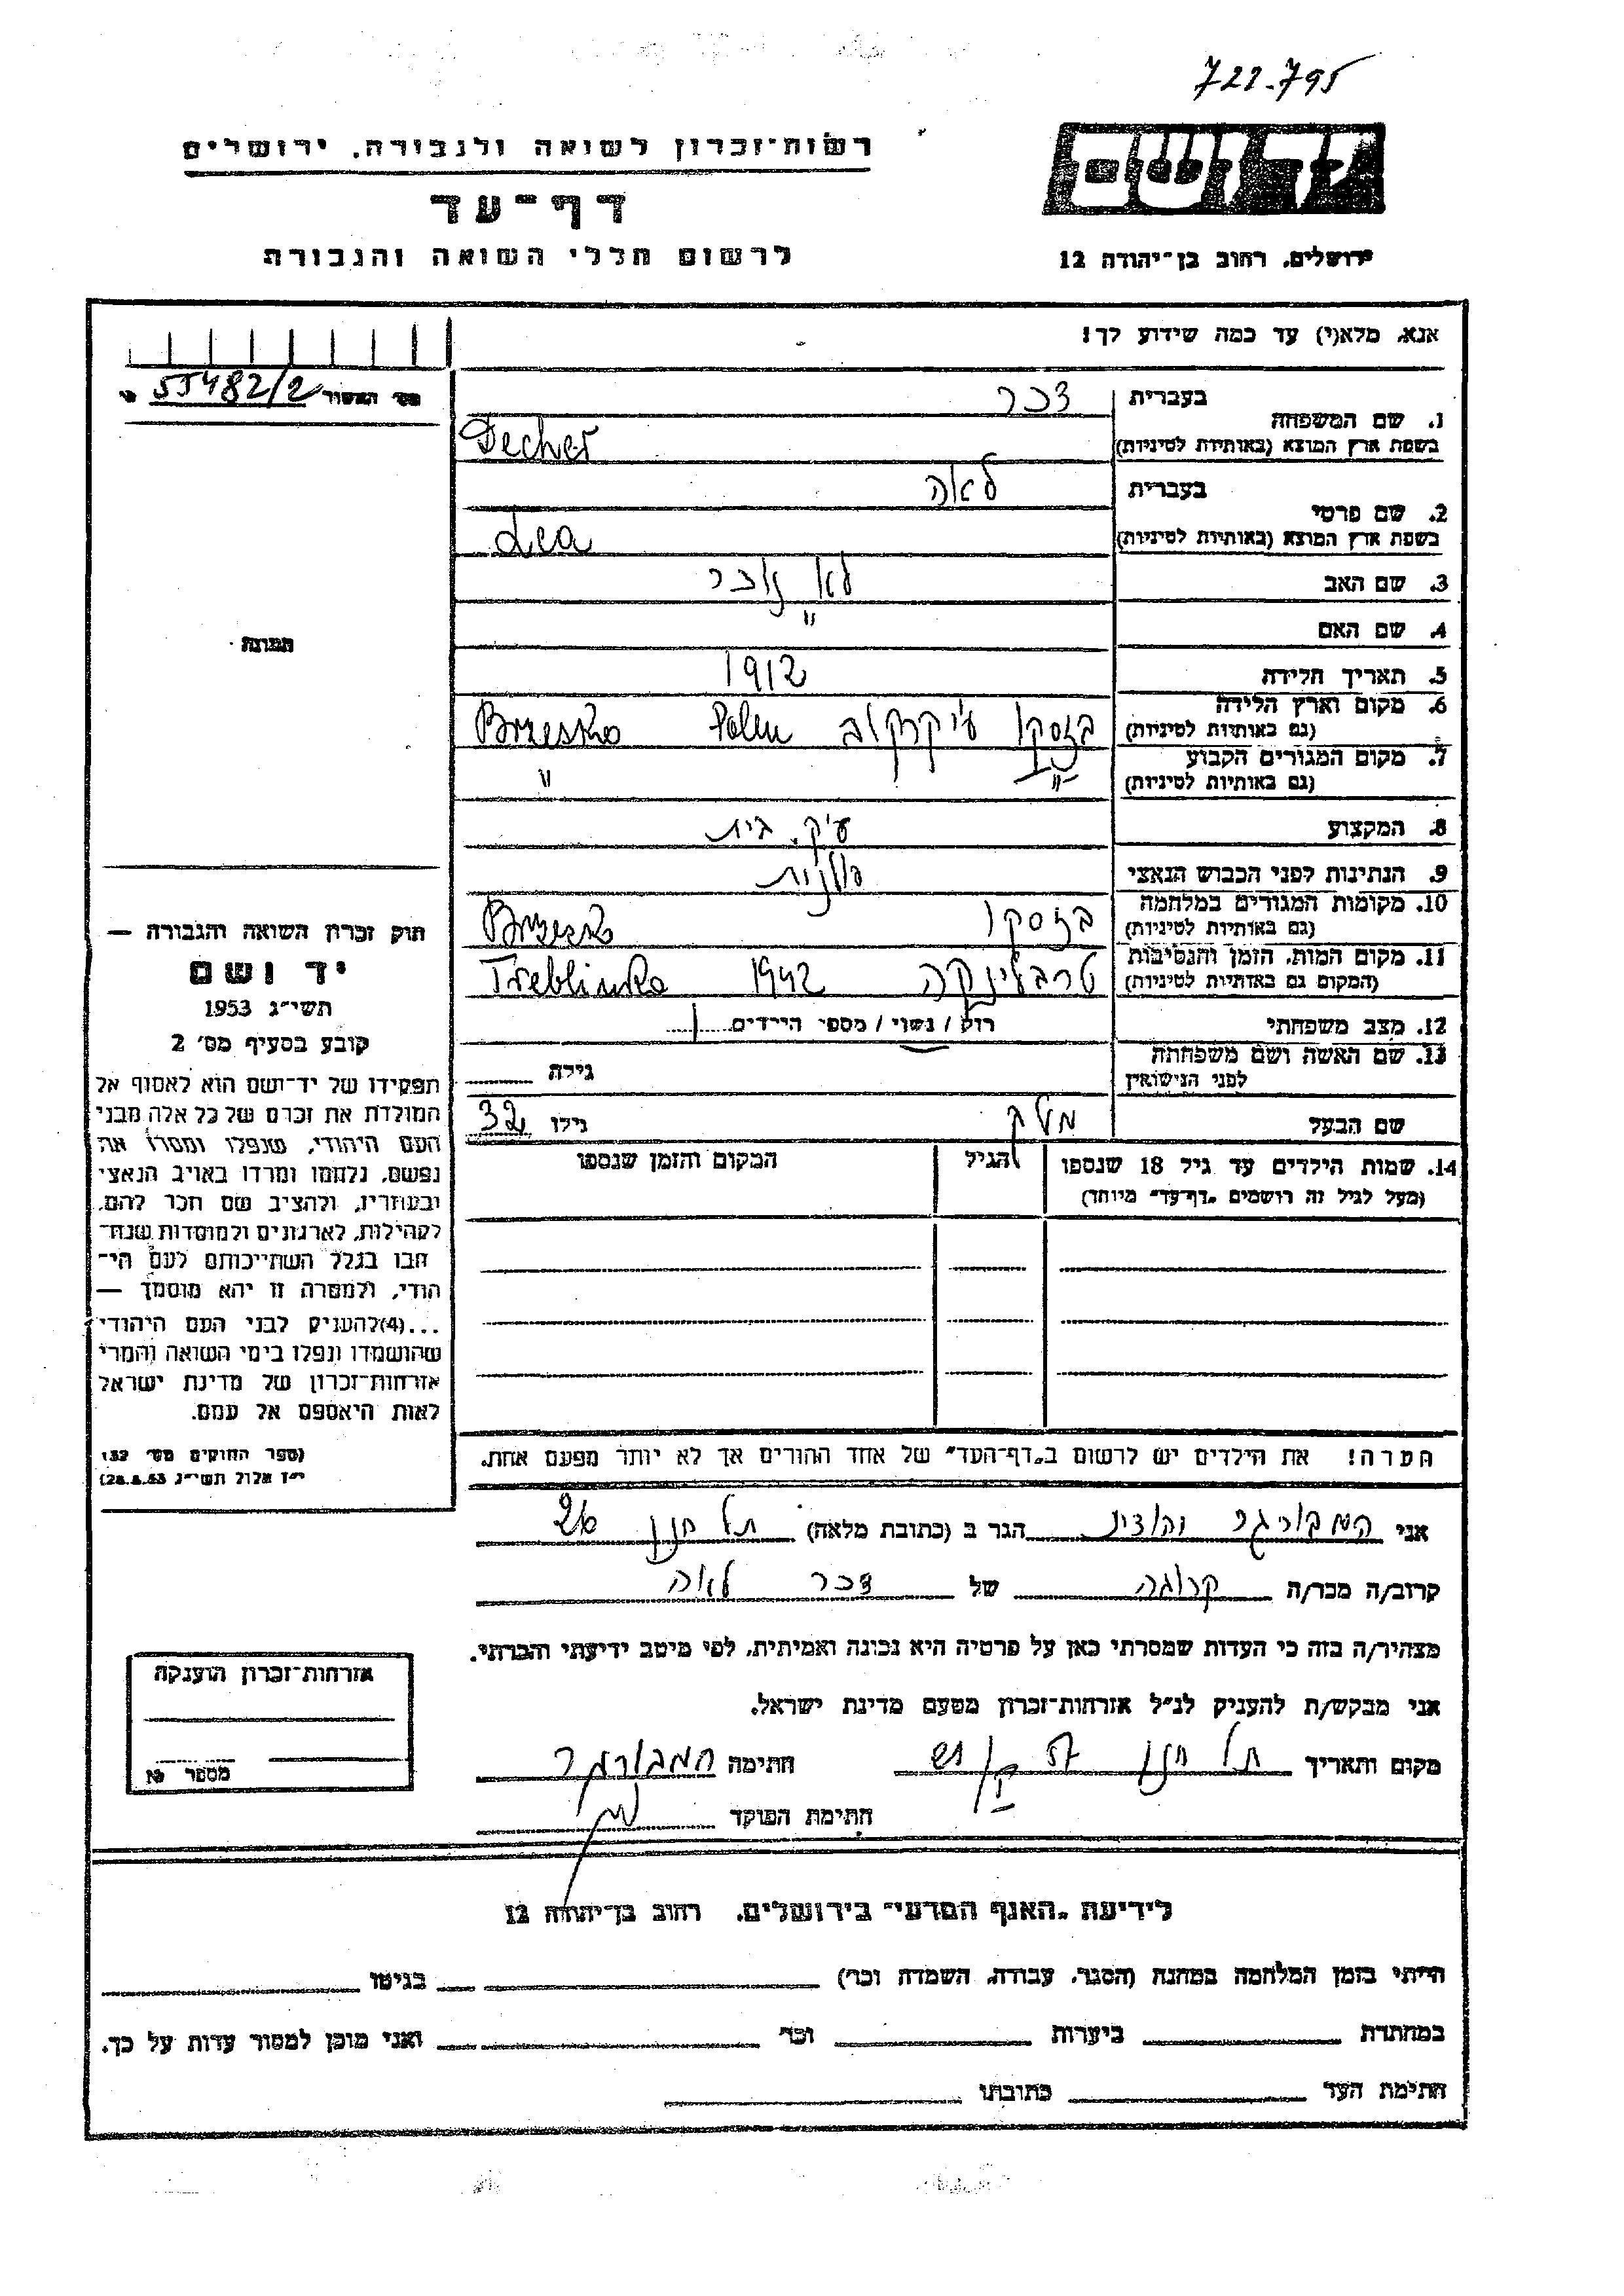 722-795
רשות־זכרון לשואה ולגבורה, ירושלים
דף־עד
לרשום חללי השואה והגבורה
ידושם
ירושלים, רחוב בן־יהודה 12
אנא, מלא(י) עד כמה שידוע לך!
מס׳ האשור 55482/2
1. שם המשפחה
בעברית דכר
בשפת ארץ המוצא (באותיות לטיניות) Decher
2. שם פרטי
בעברית לאה
בשפת ארץ המוצא (באותיות לטיניות) Lea
3. שם האב לא זוכר
4. שם האם "
תמונה
5. תאריך הלידה 1912
6. מקום וארץ הלידה
(גם באותיות לטיניות) בז'סקו ע"י קרקוב Polen Brzesko
7. מקום המגורים הקבוע
(גם באותיות לטיניות) -"- "
8. המקצוע עק. בית
9. הנתינות לפני הכבוש הנאצי פולנית
10. מקומות המגורים במלחמה
(גם באותיות לטיניות) בז'סקו Brzesko
11. מקום המות, הזמן והנסיבות
(המקום גם באותיות לטיניות) טרבלינקה 1942 Treblinka
12. מצב משפחתי רווק / נשוי / מספר הילדים
13. שם האשה ושם משפחתה
לפני הנישואין גילה
שם הבעל גילו 32
14. שמות הילדים עד גיל 18 שנספו
(מעל לגיל זה רושמים „דף־עד״ מיוחד)
הגיל
המקום והזמן שנספו
חוק זכרון השואה והגבורה —
יד ושם
תשי״ג 1953
קובע בסעיף מס׳ 2
תפקידו של יד־ושם הוא לאסוף אל
המולדת את זכרם של כל אלה מבני
העם היהודי, שנפלו ומסרו את
נפשם, נלחמו ומרדו באויב הנאצי
ובעוזריו, ולהציב שם וזכר להם,
לקהילות, לארגונים ולמוסדות שנח־
רבו בגלל השתייכותם לעם הי־
הודי, ולמטרה זו יהא מוסמך —
...(4)להעניק לבני העם היהודי
שהושמדו ונפלו בימי השואה והמרי
אזרחות־זכרון של מדינת ישראל
לאות היאספם אל עמם.
(ספר החוקים מס׳ 132
י״ז אלול תשי״ג 28.8.53)
הערה! את הילדים יש לרשום ב„דף־העד״ של אחד ההורים אך לא יותר מפעם אחת.
אני המבורגר הגר ב (כתובת מלאה) תל חנן 26
קרוב/ה מכר/ה קרובה של דכר לאה
מצהיר/ה בזה כי העדות שמסרתי כאן על פרטיה היא נכונה ואמיתית, לפי מיטב ידיעתי והכרתי.
אני מבקש/ת להעניק לנ״ל אזרחות־זכרון מטעם מדינת ישראל.
מקום ותאריך תל חנן חתימה המבורגר
חתימת הפוקד
אזרחות־זכרון הוענקה
מספר №
לידיעת „האגף המדעי״ בירושלים, רחוב בן־יהודה 12
הייתי בזמן המלחמה במחנה (הסגר, עבודה, השמדה וכו׳) בגיטו
במחתרת ביערות וכו׳ ואני מוכן למסור עדות על כך.
חתימת העד כתובתו